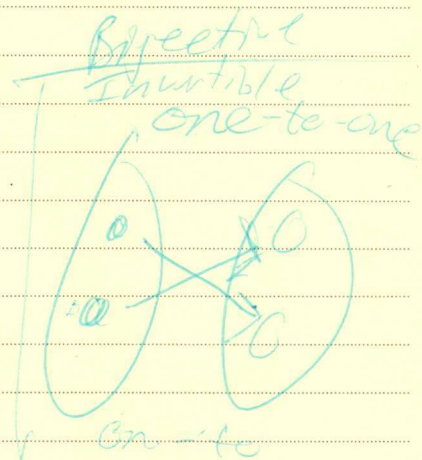 Bijective
Invertible
one-to-one
on-to